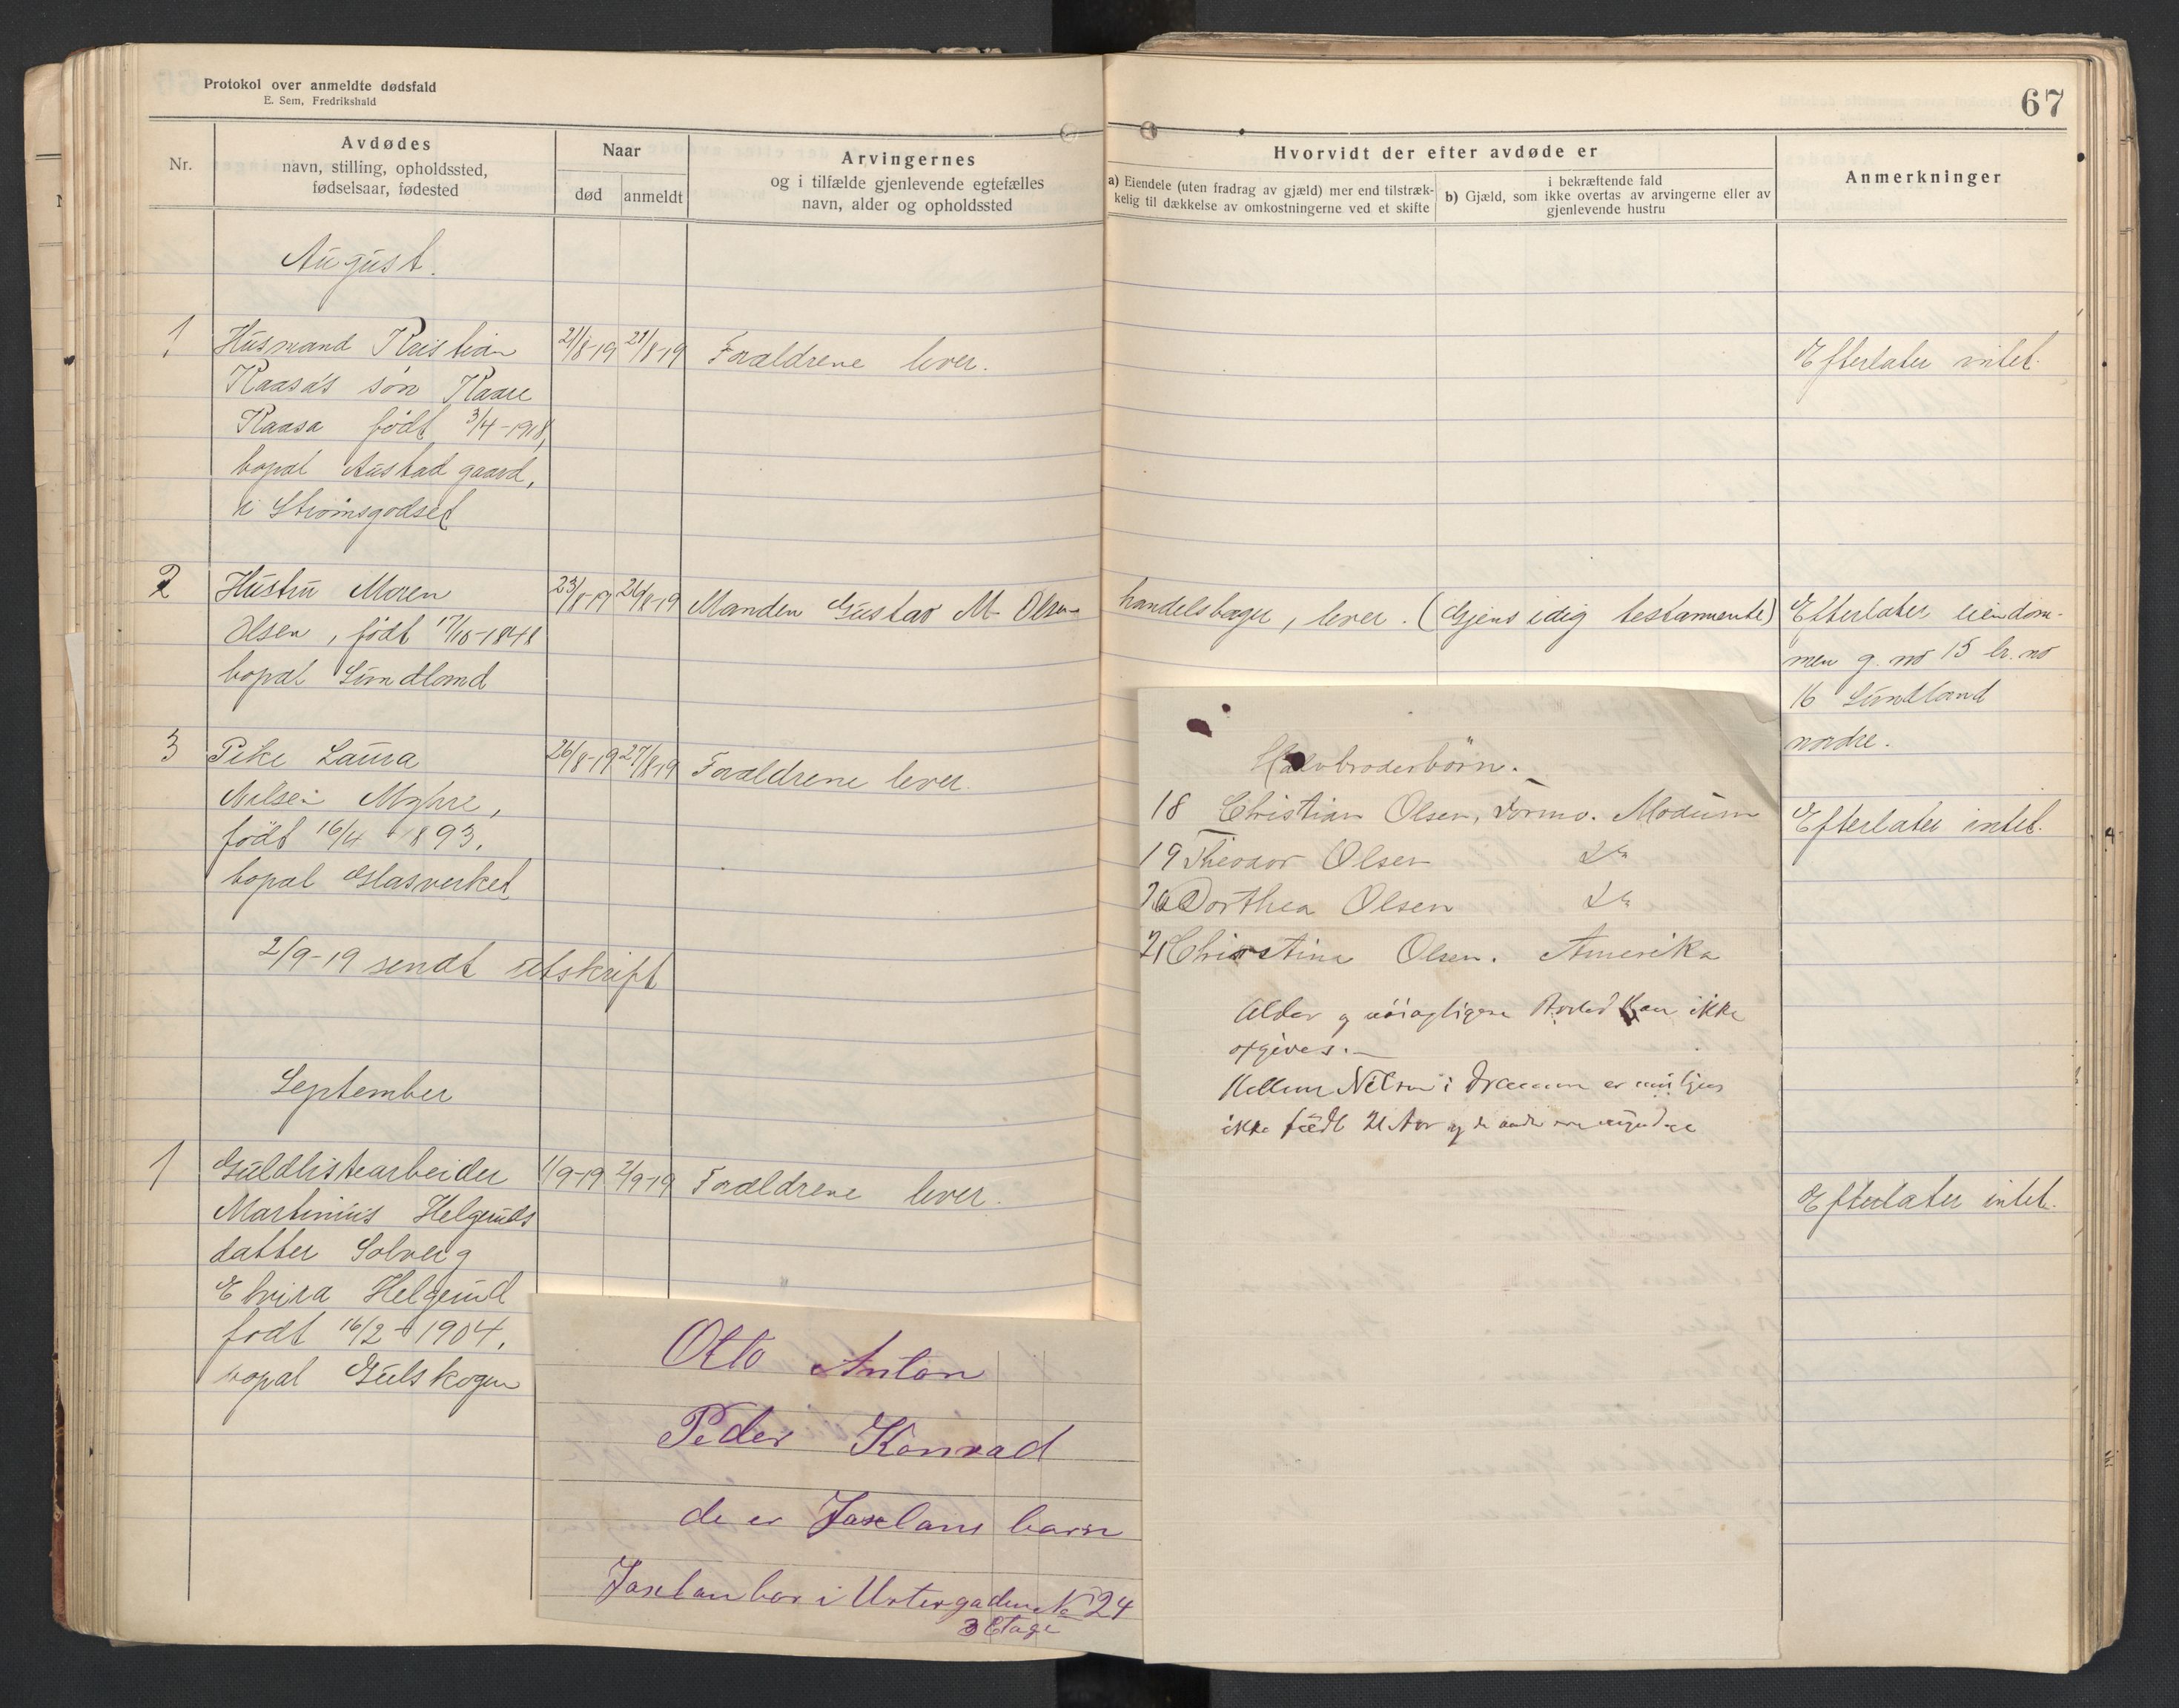 Protokol over anmeldte dødsfald
E. Sem, Fredrikshald
67
Nr.
Avdødes
navn, stilling, opholdssted,
fødselsaar, fødested
Naar
død
anmeldt
Arvingernes
og i tilfælde gjenlevende egtefælles
navn, alder og opholdssted
Hvorvidt der efter avdøde er
a) Eiendele (uten fradrag av gjæld) mer end tilstræk-
kelig til dækkelse av omkostningerne ved et skifte
i bekræftende fald
b) Gjæld, som ikke overtas av arvingerne eller av
gjenlevende hustru
Anmerkninger
August.
1 Husmand Kristian 21/8-19 21/8-19 Forældrene lever. Efterlater intet.
Kaasa's søn Kaare
Kaasa født 3/4-1918,
bopæl Austad gaard,
i Strømsgodset
2 Hustru Maren 23/8-19 26/8-19 Manden Gustav M. Olsen handelsbøger, lever. (Gjensidig testamente) Efterlater eiendom-
Olsen, født 17/10-1848 men g. no 15 br. no
bopæl Sundland 16 Sundland
nordre.
3 Pike Laura 26/8-19 27/8-19 Forældrene lever. Efterlater intet.
Nilsen Myhre,
født 16/4 1893.
bopæl Glasverket
2/9-19 sendt utskrift
September
1 Guldlistearbeider 1/9-19 2/9-19 Forældrene lever. Efterlater intet.
Martinius Helgeruds
datter Solveig
Elvira Helgerud
født 16/2-1904.
bopæl Gulskogen
Halvbroderbørn.
18 Christian Olsen, Formo. Modum
19 Theodor Olsen Do
20 Dorthea Olsen Do
21 Christine Olsen. Amerika
Alder og nöiagtigere Bosted kan ikke
opgives.
Nilsen i Drammen er
ikke født 21 Aar og de andre ere myndige
Otto Anton
Peder Konrad
de er Joselans barn
Joselan bor i Urtergaden No 24
3 Etage